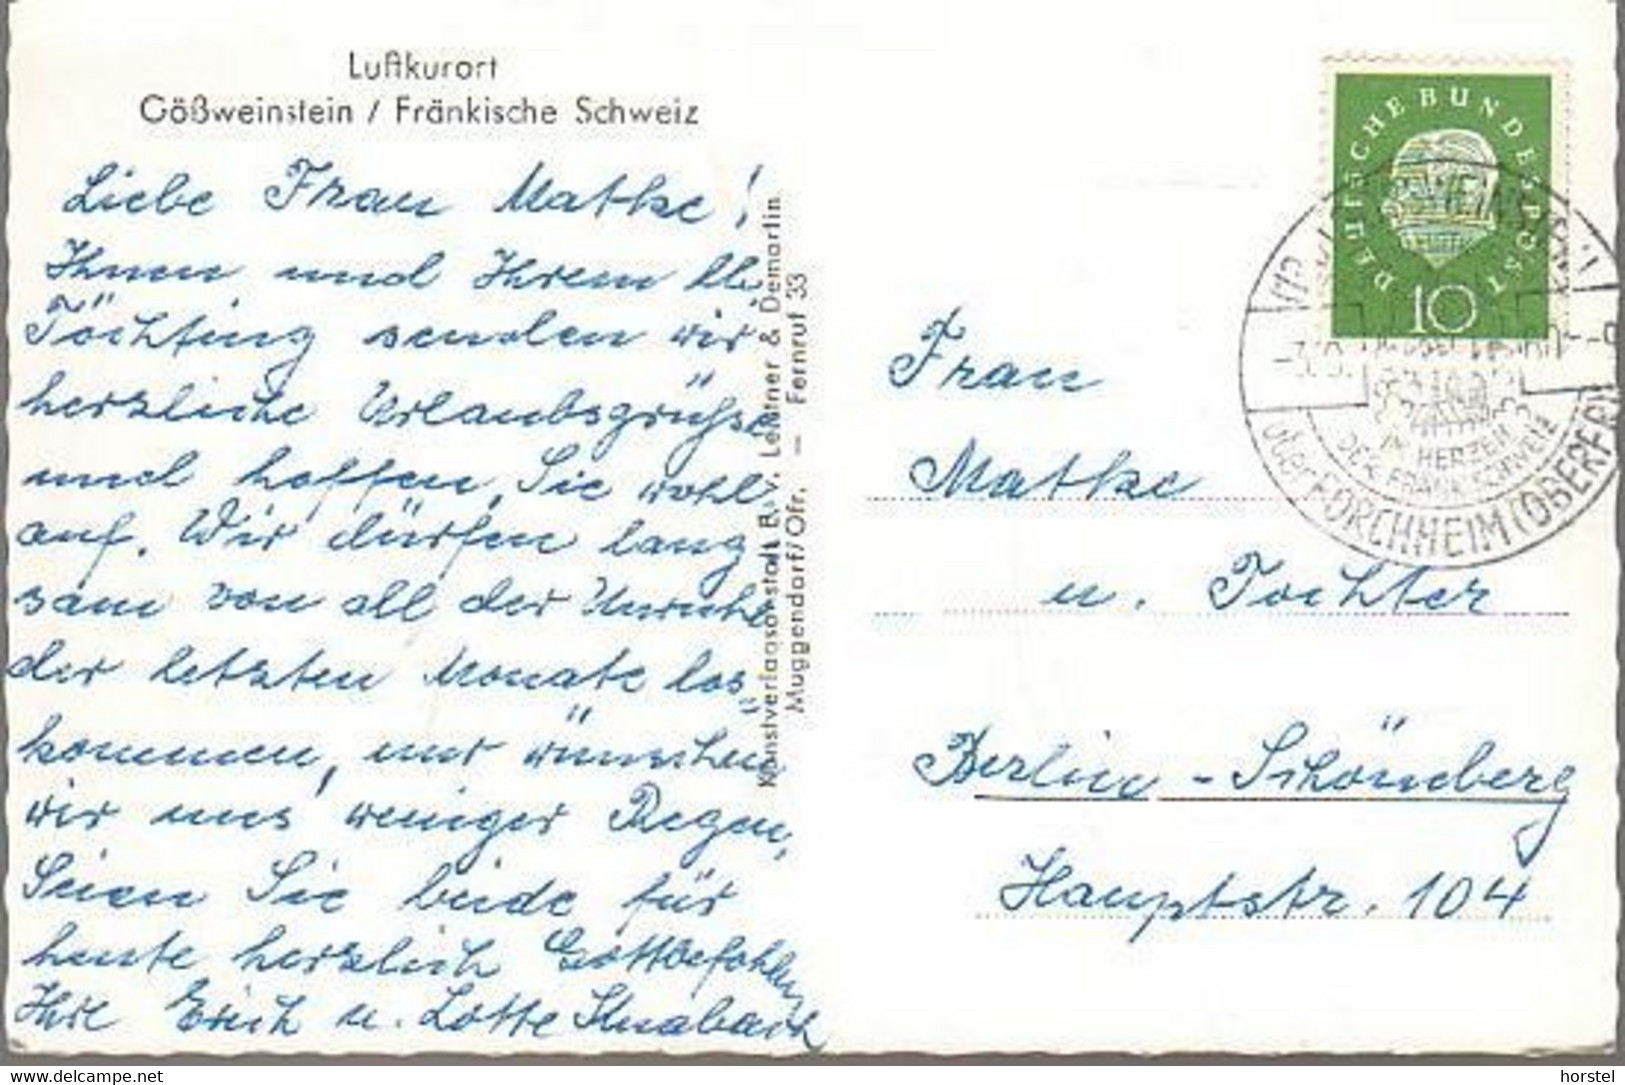 Luftkurort
Gößweinstein / Fränkische Schweiz
Liebe Frau Matke!
Ihnen und Ihrem lb.
Töchting senden wir
herzliche Urlaubsgrüsse
und hoffen, Sie wohl-
auf. Wir dürfen lang-
sam von all der Unruhe
der letzten Monate los-
kommen, nur wünschen
wir uns weniger Regen.
Seien Sie beide für
heute herzlich Gottbefohlen,
Ihre Erich u. Lotte
Kunstverlagsanstalt B. v. Leistner & Demartin
Muggendorf/Ofr. — Fernruf 33
DEUTSCHE BUNDESPOST
10
IM HERZEN
DER FRÄNK. SCHWEIZ
über FORCHHEIM (OBERFR
Frau
Matke
u. Tochter
Berlin-Schöneberg
Hauptstr. 104
www.delcampe.net
horstel